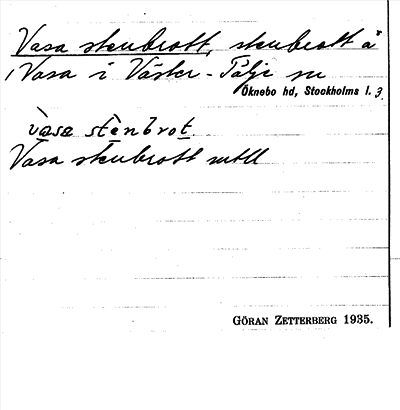 Vasa stenbrott, stenbrott å
Vasa i Väster-Tälje sn
Öknebo hd, Stockholms l. 3.
vasa stenbrot
Vasa stenbrott mtll
GÖRAN ZETTERBERG 1935.